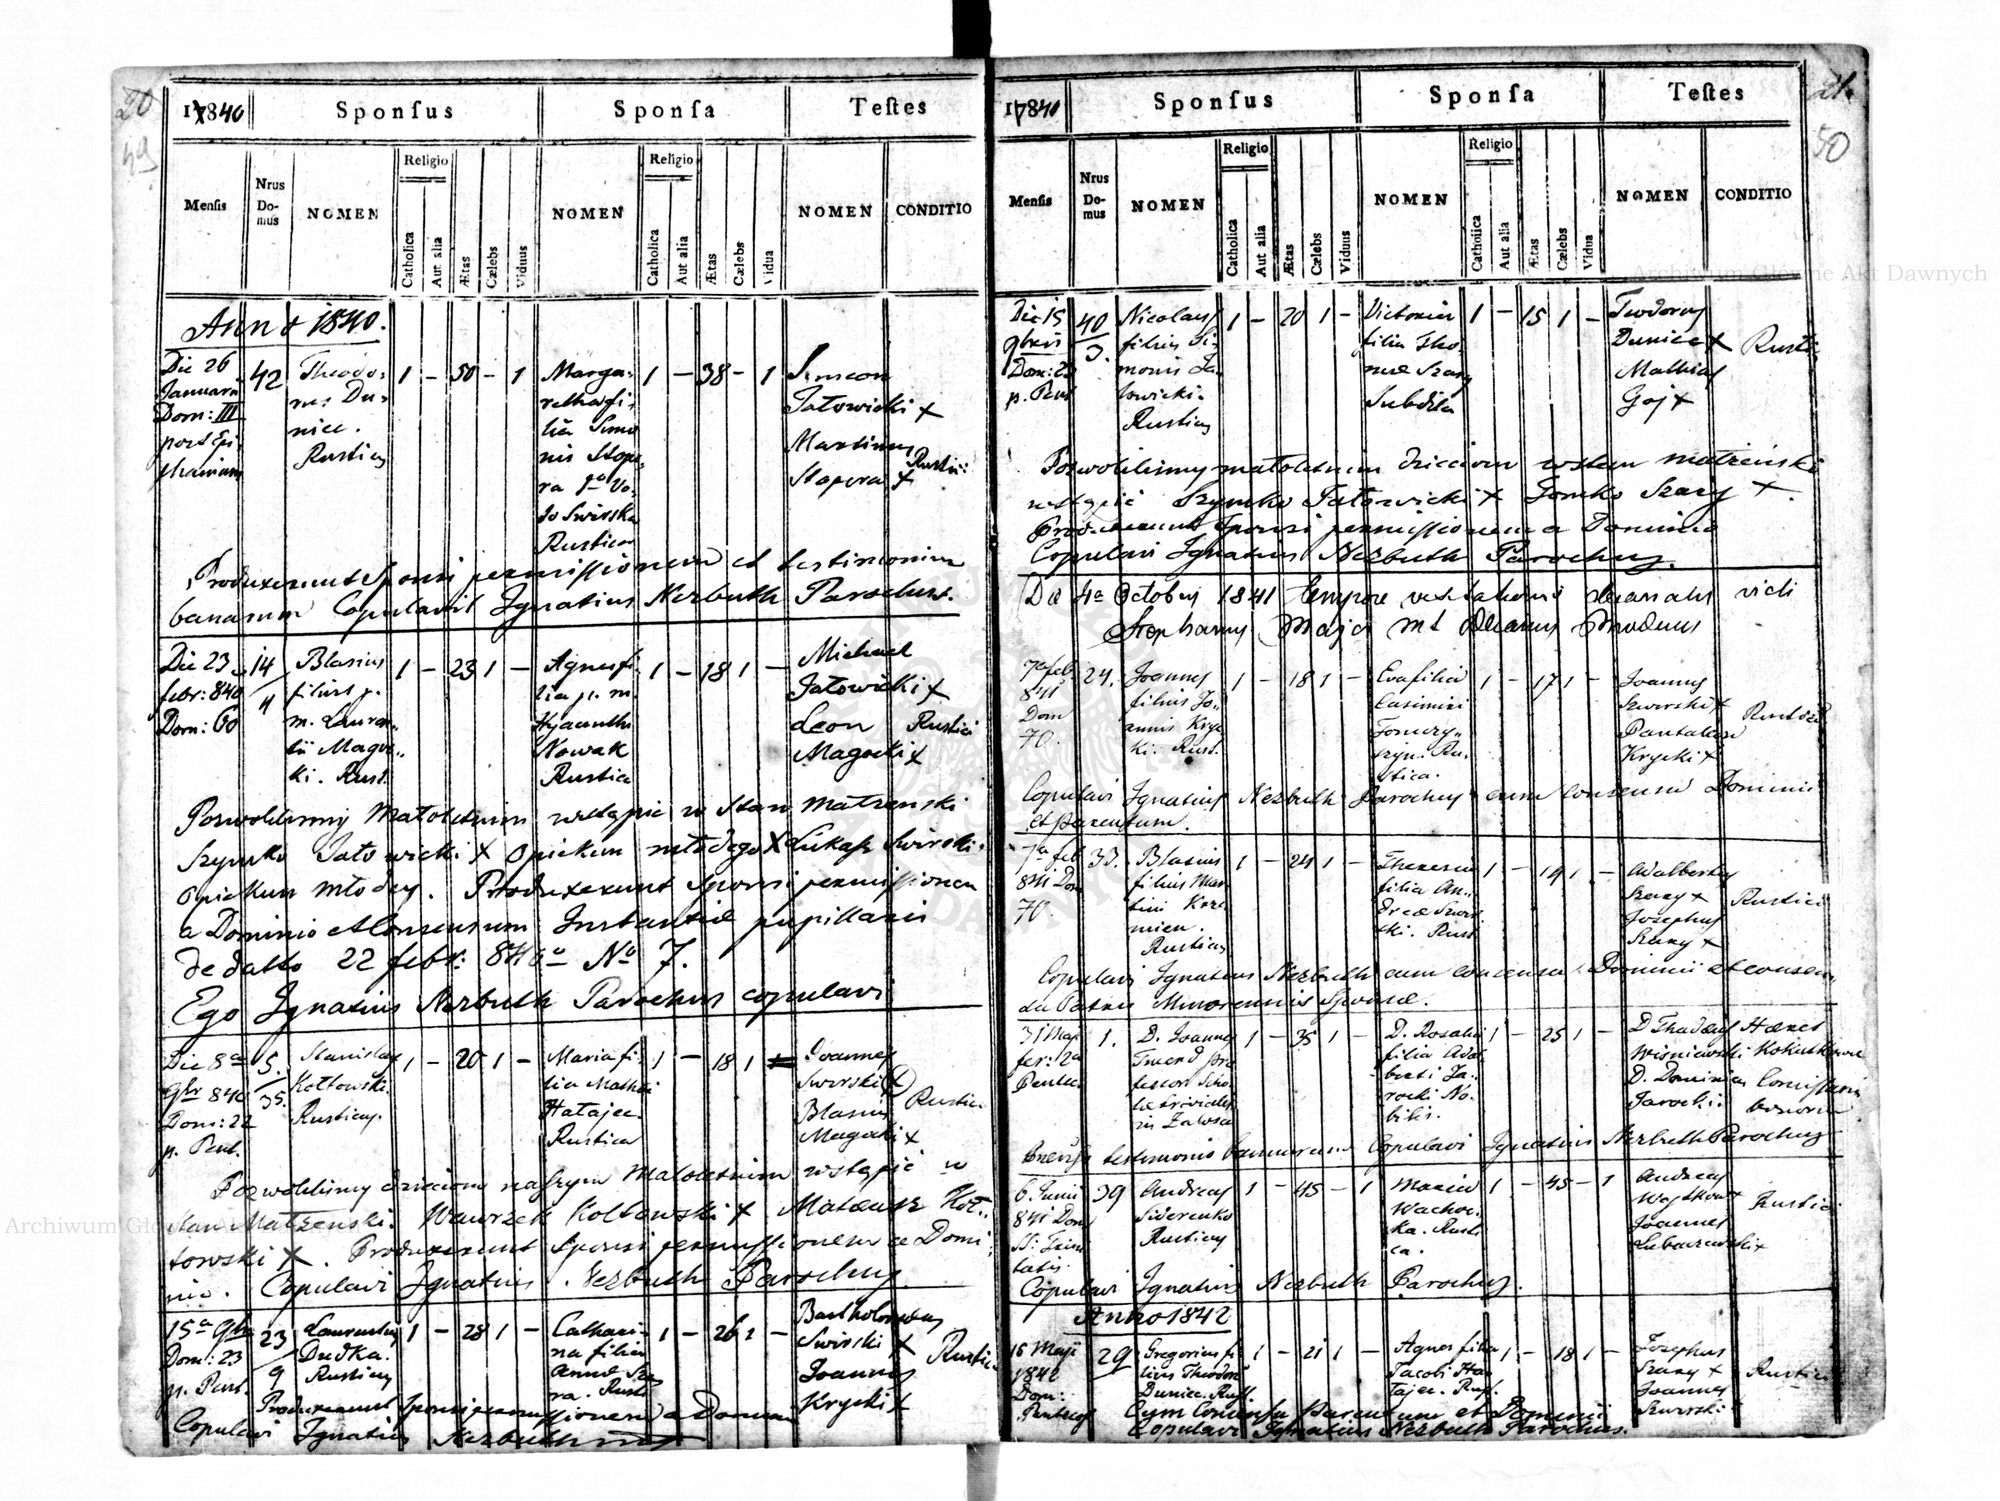 20
49
17840
Sponſus
Sponſa
Teſtes
Menſis
Nrus Do-mus
NOMEN
Religio
Catholica
Aut alia
Ætas
Cælebs
Viduus
NOMEN
Religio
Catholica
Aut alia
Ætas
Cælebs
Vidua
NOMEN
CONDITIO
Anno 1840.
Die 26
Januarii
Dom: III
post Epi
phaniam
42
Theodo-
rus Du-
niec.
Rusticus
1 – 50 – 1
Marga-
retha fi-
lia Simo
nis Stope
ra 1º Vo-
to Swirska
Rustica
1 – 38 – 1
Simeon
Jatowicki +
Martinus
Stopera +
Rustici
Produxerunt Sponsi permissionem et testimonium
banarum Copulavit Ignatius Nerbuth Parochus.
Die 23
febr: 840
Dom: 60
14
4
Blasius
filius p.
m. Lauren-
tii Magoc-
ki. Rust.
1 – 23 1 –
Agnes fi-
lia p. m.
Hyacinthi
Nowak
Rustica
1 – 18 1 –
Michael
Jatowicki +
Leon
Magocki +
Rustici
Pozwolilismy Małoletnim wstąpic w Stan Małzenski
Szymko Jatowicki + Opiekun młodego + Łukasz Swirski
opiekun młodey. Produxerunt Sponsi permissionem
a Dominio et Consensum Instantiæ pupillaris
de datto 22 febr: 840º Nº 7.
Ego Ignatius Nerbuth Parochus copulavi
Die 8ª
9br 840
Dom: 22
p. Pent.
5.
35.
Stanislaus
Kołtowski.
Rusticus.
1 – 20 1 –
Maria fi-
lia Mathei
Hatajec.
Rustica
1 – 18 1
Joannes
Swirski +
Blasius
Magocki +
Rustici
Pozwolilismy dzieciom naszym Małoletnim wstąpic w
stan Małzenski. Wawrzek Kołtowski + Mateusz Hot..
towski + . Produxerunt Sponsi permissionem a Domi
nio. Copulavi Ignatius Nerbuth Parochus
15ª 9br
Dom: 23
p. Pent.
23
9
Laurentius
Dudka.
Rusticus
1 – 28 1 –
Cathari-
na filia
Rust
1 – 26 1 –
Bartholomeus
Swirski +
Joannes
Krycki +
Rustici
Produxerunt Sponsi permissionem a Dominio
Copulavi Ignatius Nerbuth
21.
50
17840
Sponſus
Sponſa
Teſtes
Menſis
Nrus Do-mus
NOMEN
Religio
Catholica
Aut alia
Ætas
Cælebs
Viduus
NOMEN
Religio
Catholica
Aut alia
Ætas
Cælebs
Vidua
NOMEN
CONDITIO
Die 15
9bris
Dom: 23
p. Pent
40
3.
Nicolaus
filius Si-
monis Ja-
towicki.
Rusticus
1 – 20 1 –
Victoria
filia Tho-
mæ Szary
Subdita
1 – 15 1 –
Teodorus
Duniec +
Mathias
Goj +
Rustici
Pozwolilismy małoletnim dzieciom w stan małzenski
wstąpić Szymko Jatowicki + Tomko Szary +.
Produxerunt Sponsi permissionem a Dominio
Copulavi Ignatius Nerbuth Parochus.
Die 4ª Octobris 1841 tempore visitationis decanalis vidi
Stephanus Decanus
7ª feb
841
Dom
70.
24.
Joannes
filius Jo-
annis Kryc
ki. Rust.
1 – 18 1 –
Eva filia
Casimiri
Rustica.
1 – 17 1 –
Joannes
Szwirski +
Pantaleon
Krycki +
Rustici
Copulavi Ignatius Nerbuth Parochus cum consensu Dominii
et parentum.
7ª feb
841 Dom
70.
33.
Blasius
filius Mar
tini
Rusticus
1 – 24 1 –
Theresia
filia An-
dreæ Szwir
ski. Rust
1 – 19 1 –
Adalbertus
Szary +
Josephus
Szary +
Rustici
Copulavi Ignatius Nerbuth cum consensu Dominii et consen
su Patris Minorennis Sponsæ.
31 Maj
fer: 2a
Pentec
1.
D. Joannes
1 – 35 1 –
D. Rosalia
filia Adal
berti Ja-
rocki No-
bilis.
1 – 25 1 –
D Thadeus
Wisniewski
D. Dominicus
Jarocki.
testimonio bannorum Copulavi Ignatius Nerbuth Parochus
6 Junii
841 Dom
SS: Trini
tatis
39
Andreas
Siderenko
Rusticus
1 – 45 – 1
Maria
Wachoc-
ka. Rusti
ca.
1 – 45 – 1
Andreas
Joannes
Rustici
Copulavi Ignatius Nerbuth Parochus.
Anno 1842
15 Maji
1842
Dom:
Pentecos
29
Gregorius fi
lius Theodori
Duniec. Rust.
1 – 21 1 –
Agnes filia
Jacobi Ha
tajec. Rust.
1 – 18 1 –
Josephus
Szary +
Joannes
Szwirski
Rustici
Cum Consensu Parentum et Dominii
Copulavi Ignatius Nerbuth Parochus.
Archiwum Główne Akt Dawnych